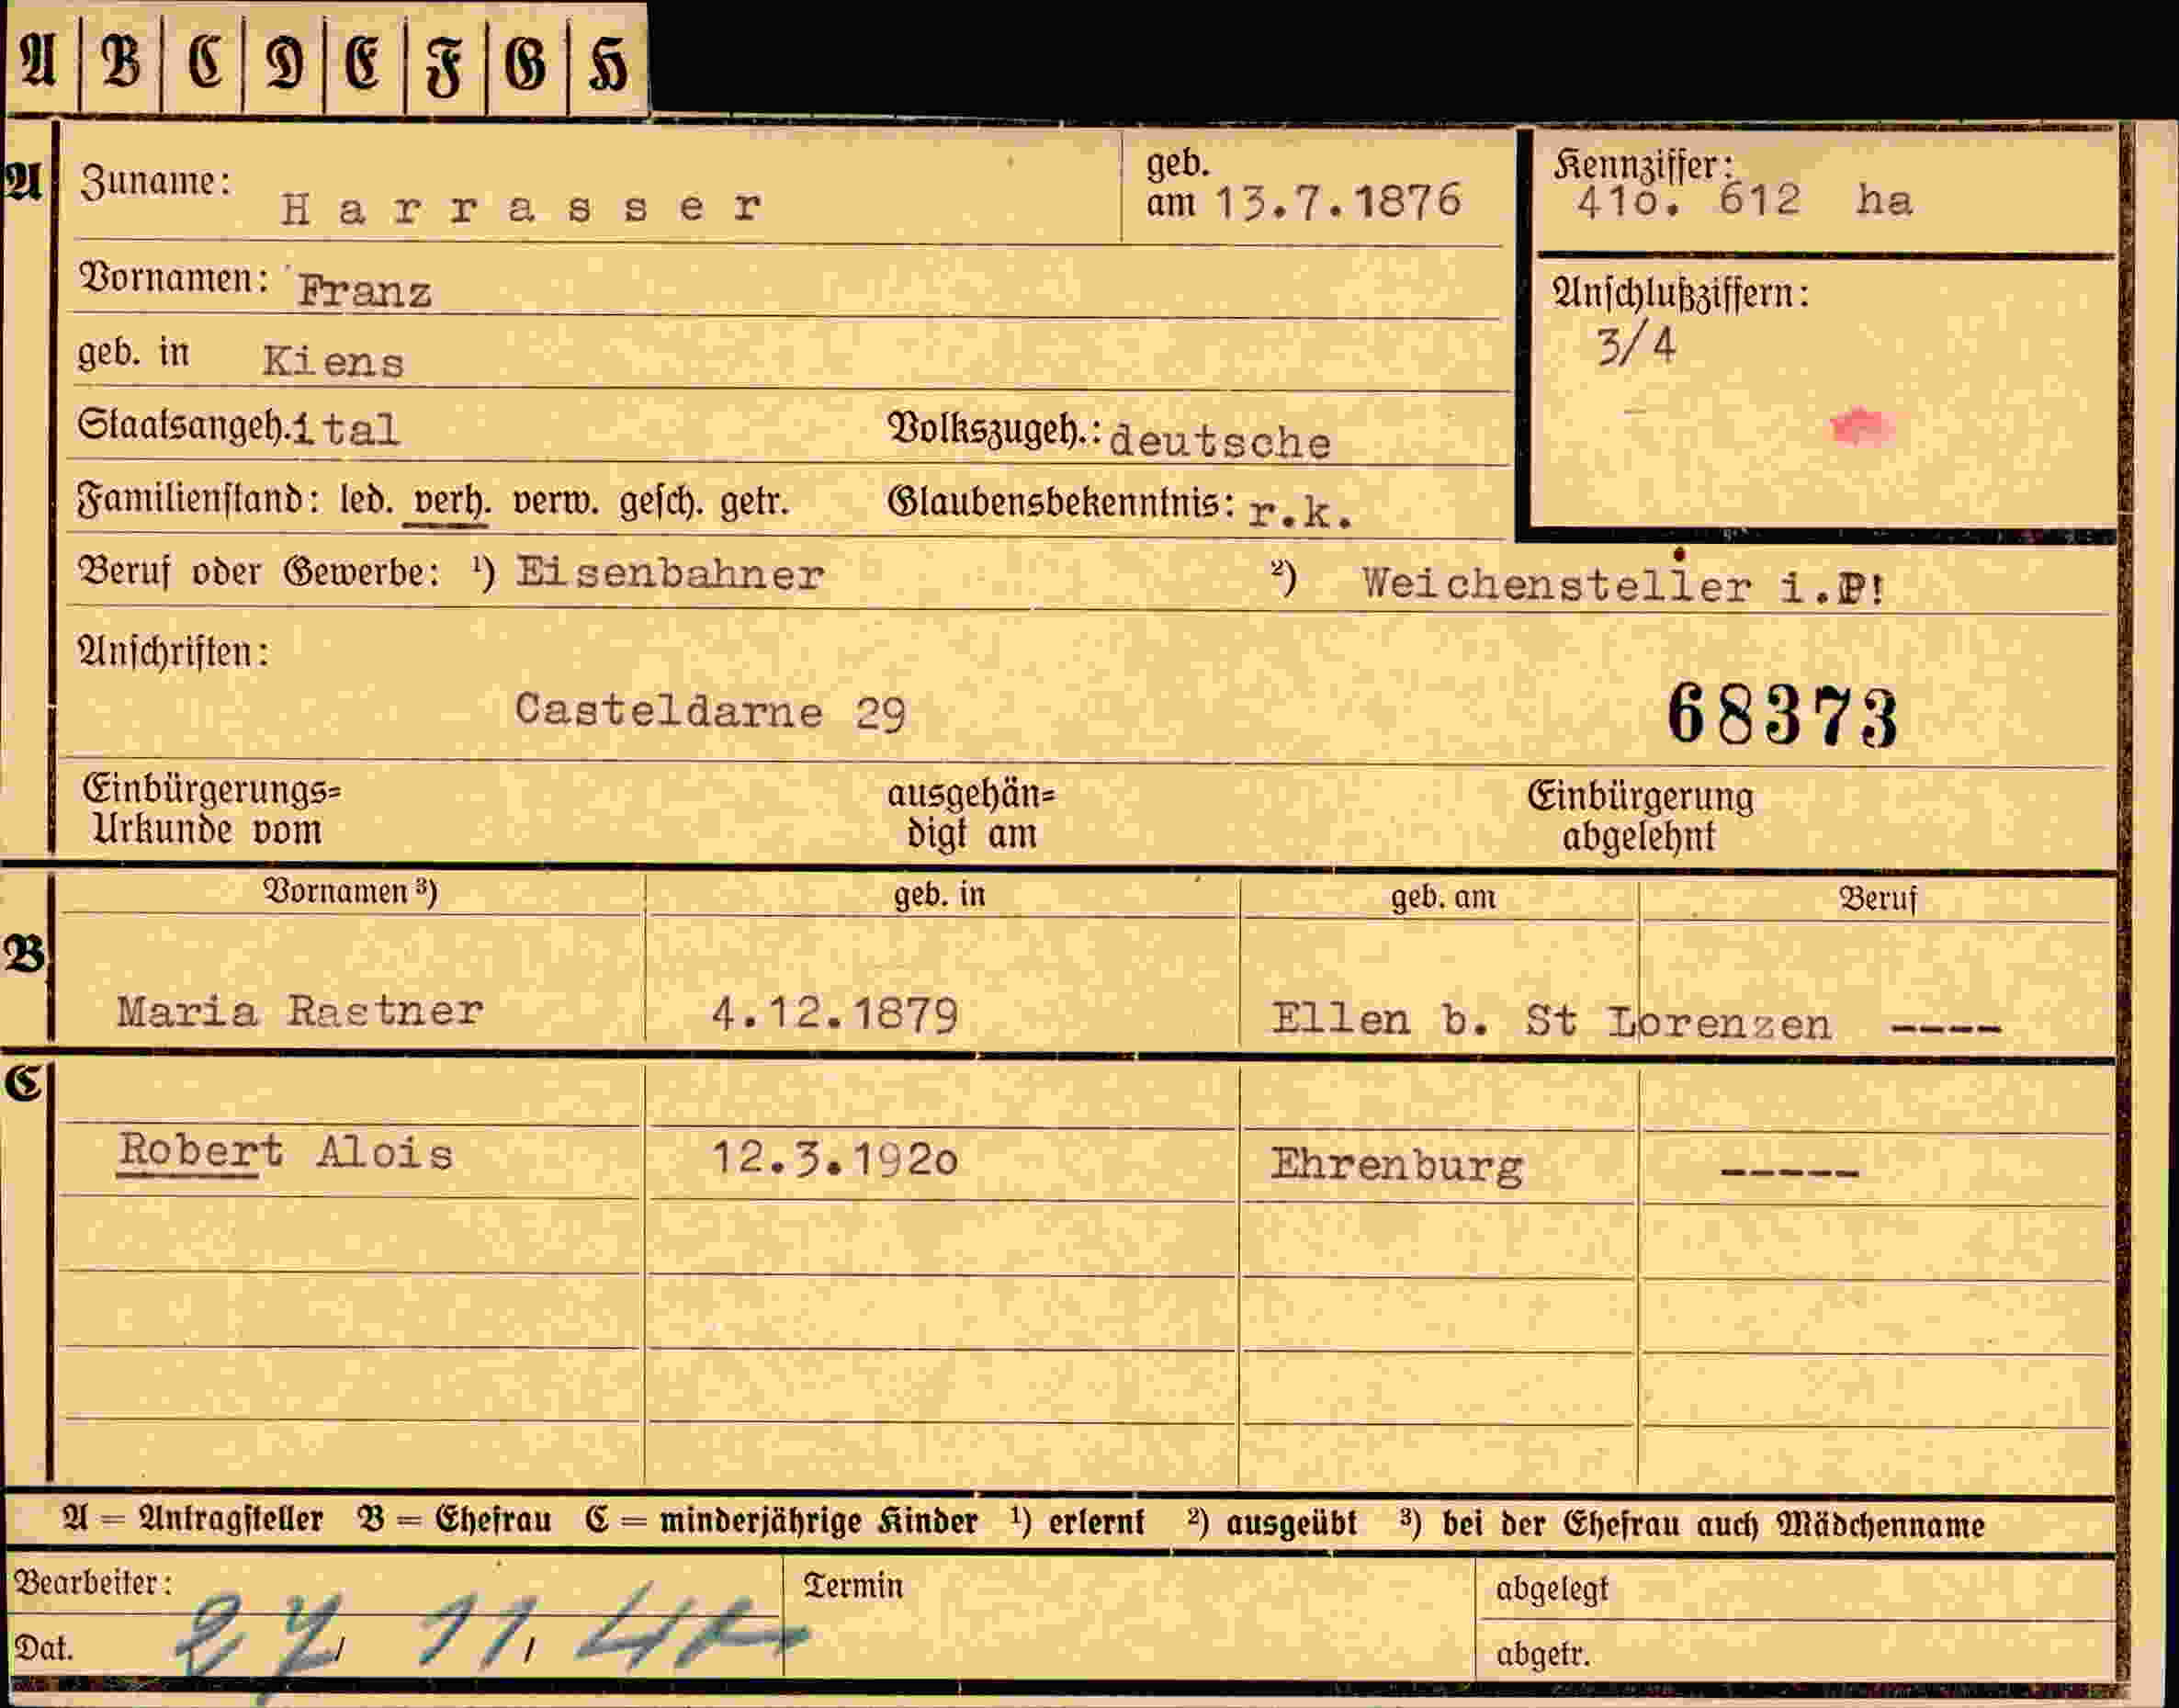 A B C D E F G H
A Zuname: Harrasser geb. am 13.7.1876 Kennziffer: 41o. 612 ha
Vornamen: Franz Anschlußziffern: 3/4
geb. in Kiens
Staatsangeh. ital Volkszugeh.: deutsche
Familienstand: led. verh. verw. gesch. getr. Glaubensbekenntnis: r.k.
Beruf oder Gewerbe: ¹) Eisenbahner ²) Weichensteller i.P!
Anschriften:
Casteldarne 29 68373
Einbürgerungs=
Urkunde vom
ausgehän=
digt am
Einbürgerung
abgelehnt
Vornamen ³) geb. in geb. am Beruf
B
Maria Rastner 4.12.1879 Ellen b. St Lorenzen ----
C
Robert Alois 12.3.192o Ehrenburg -----
A = Antragsteller B = Ehefrau C = minderjährige Kinder ¹) erlernt ²) ausgeübt ³) bei der Ehefrau auch Mädchenname
Bearbeiter: Termin abgelegt
Dat. 27, 11, abgetr.